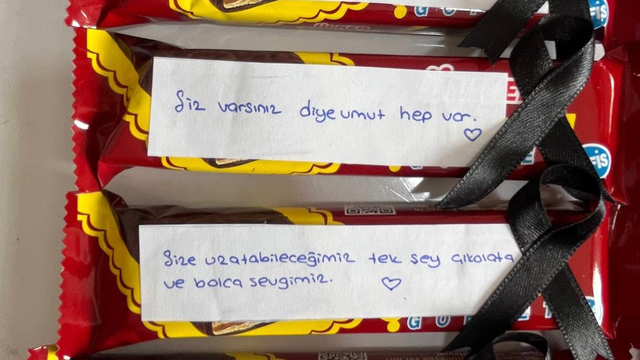 Siz varsınız diye umut hep var.
Size uzatabileceğimiz tek şey çikolata
ve bolca sevgimiz.